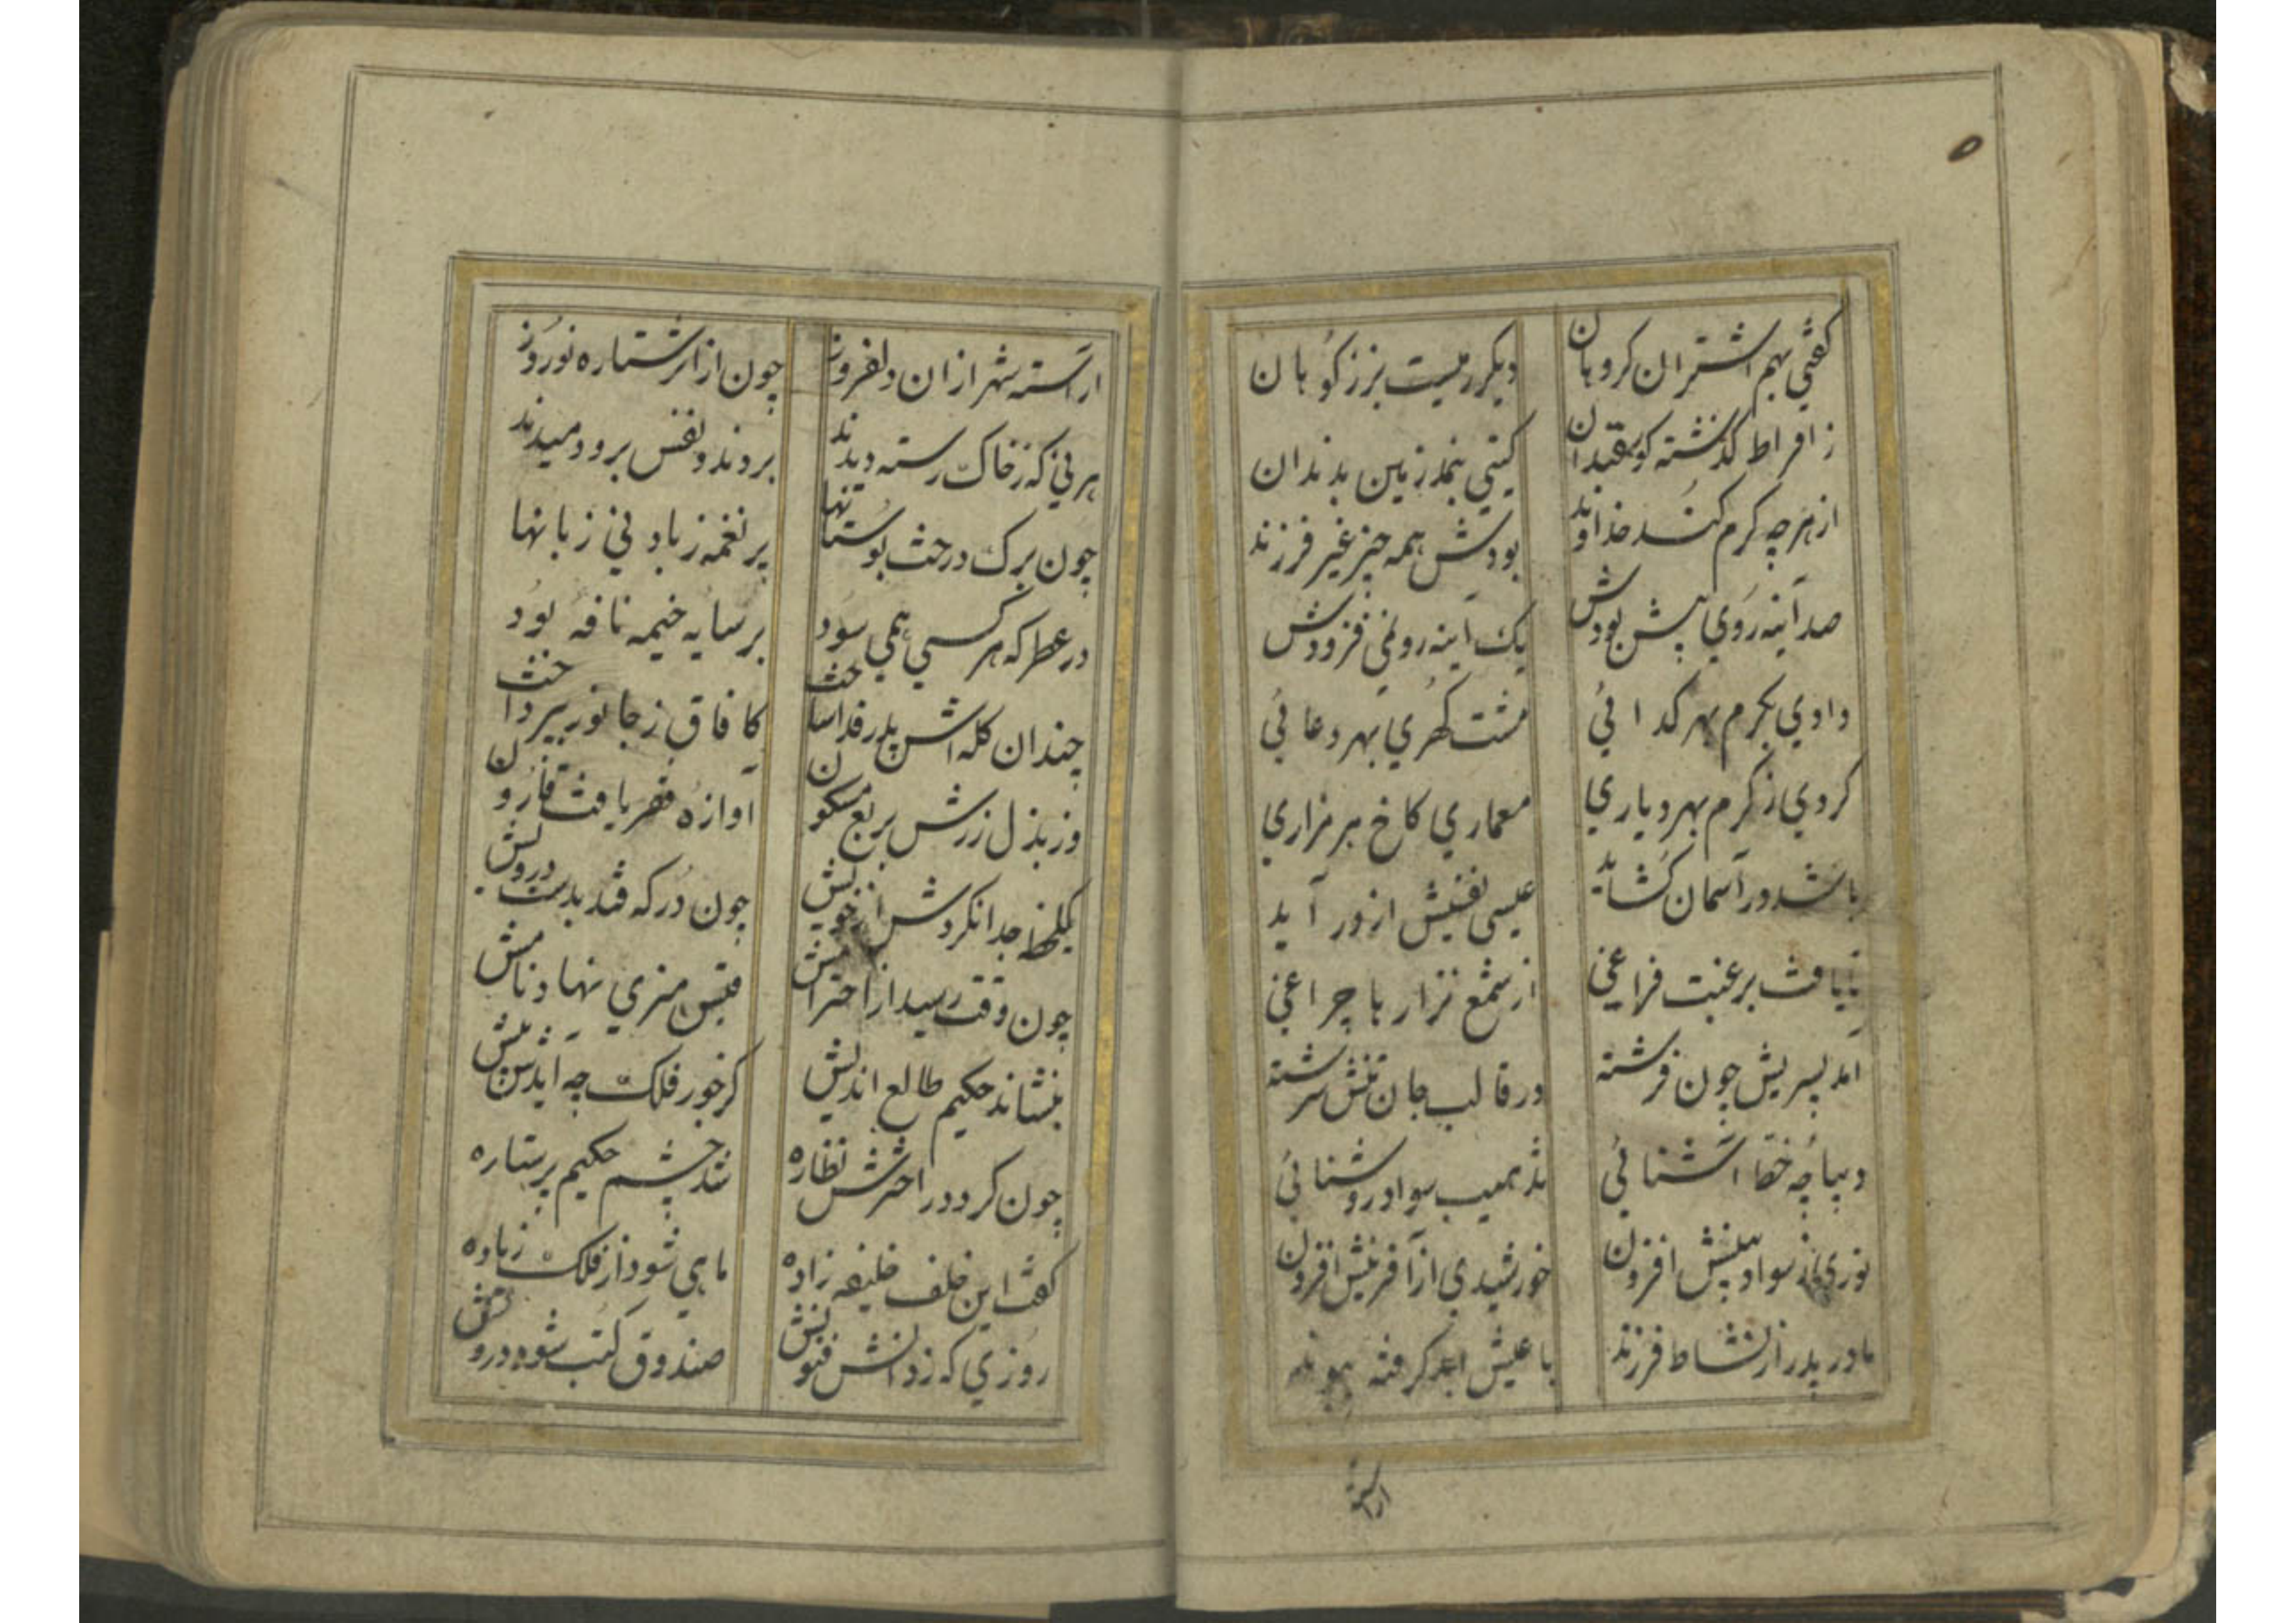 ۵
کفتی بهم اشتران کروهان دیکر رمیست بزز کوهان
ز افراط کذشته کوسفندان کیتی بنمد زمین بدندان
از هرچه کرم کند خداوند بودش همه چیز غیر فرزند
صد آینه روی پیش بودش یک آینه رو نمی فزودش
دادی بکرم بهر کدائی مشت کهری بهر دعائی
کردی ز کرم بهر دیاری معماری کاخ هر مزاری
باشد در آسمان کشاید عیسی نفسیش از در آید
تا یافت برغبت فراغی از شمع نزار با چراغی
آمد پسریش چون فرشته در قالب جان تنش سرشته
دیباچه خط آشنائی تذهیب سواد روشنائی
نوری سواد بینش افزون خورشیدی از آفرینش افزون
مادر پدر از نشاط فرزند با عیش ابد کرفته پیوند
اراسته
اراسته شهر ازان دلفروز چون از اثر ستاره نوروز
هر نی که ز خاک رسته دیدند بردند و نفس برو دمیدند
چون برک درخت بوستانها پر نغمه ز باد نی زبانها
در عطر که هر کسی همی سود بر سایه خیمه نافه بود
چندان کله اش پدر فداساخت کافاق ز جانور بپرداخت
وز بذل زرش بربع مسکون آوازه فقر یافت قارون
یکلحظه جدا نکردش از خویش چون در که فتد بدست درویش
چون وقت رسید از اخترانش قیس هنری نهاد نامش
بنشاند حکیم طالع اندیش کز خور فلک چه آیدش پیش
چون کرد در اخترش نظاره شد چشم حکیم پر ستاره
کفت این خلف خلیفه زاده ماهی شود از فلک زیاده
روزی که ز دانش فنونش صندوق کتب شود درونش